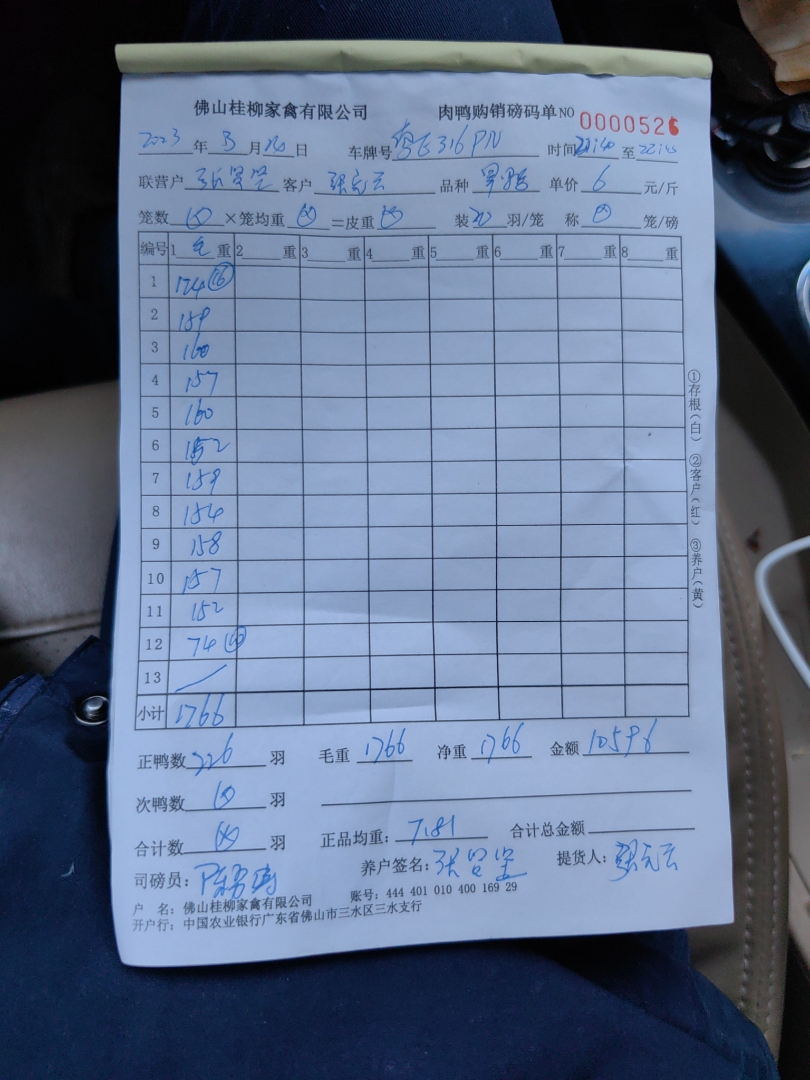 佛山桂柳家禽有限公司 肉鸭购销磅码单NO 0000526
2023年3月20日 车牌号 316PN 时间22:40至22:45
联营户 客户 品种 单价 6 元/斤
笼数 ×笼均重 =皮重 装20羽/笼 称 笼/磅
编号 1毛重 2 重 3 重 4 重 5 重 6 重 7 重 8 重
1 174 16
2 159
3 160
4 157
5 160
6 152
7 159
8 154
9 158
10 157
11 152
12 74 10
13 /
小计 1766
正鸭数226羽 毛重1766 净重1766 金额10596
次鸭数 羽
合计数 羽 正品均重：7.81 合计总金额
司磅员： 养户签名： 提货人：
户 名：佛山桂柳家禽有限公司 账号：444 401 010 400 169 29
开户行：中国农业银行广东省佛山市三水区三水支行
①存根(白) ②客户(红) ③养户(黄)